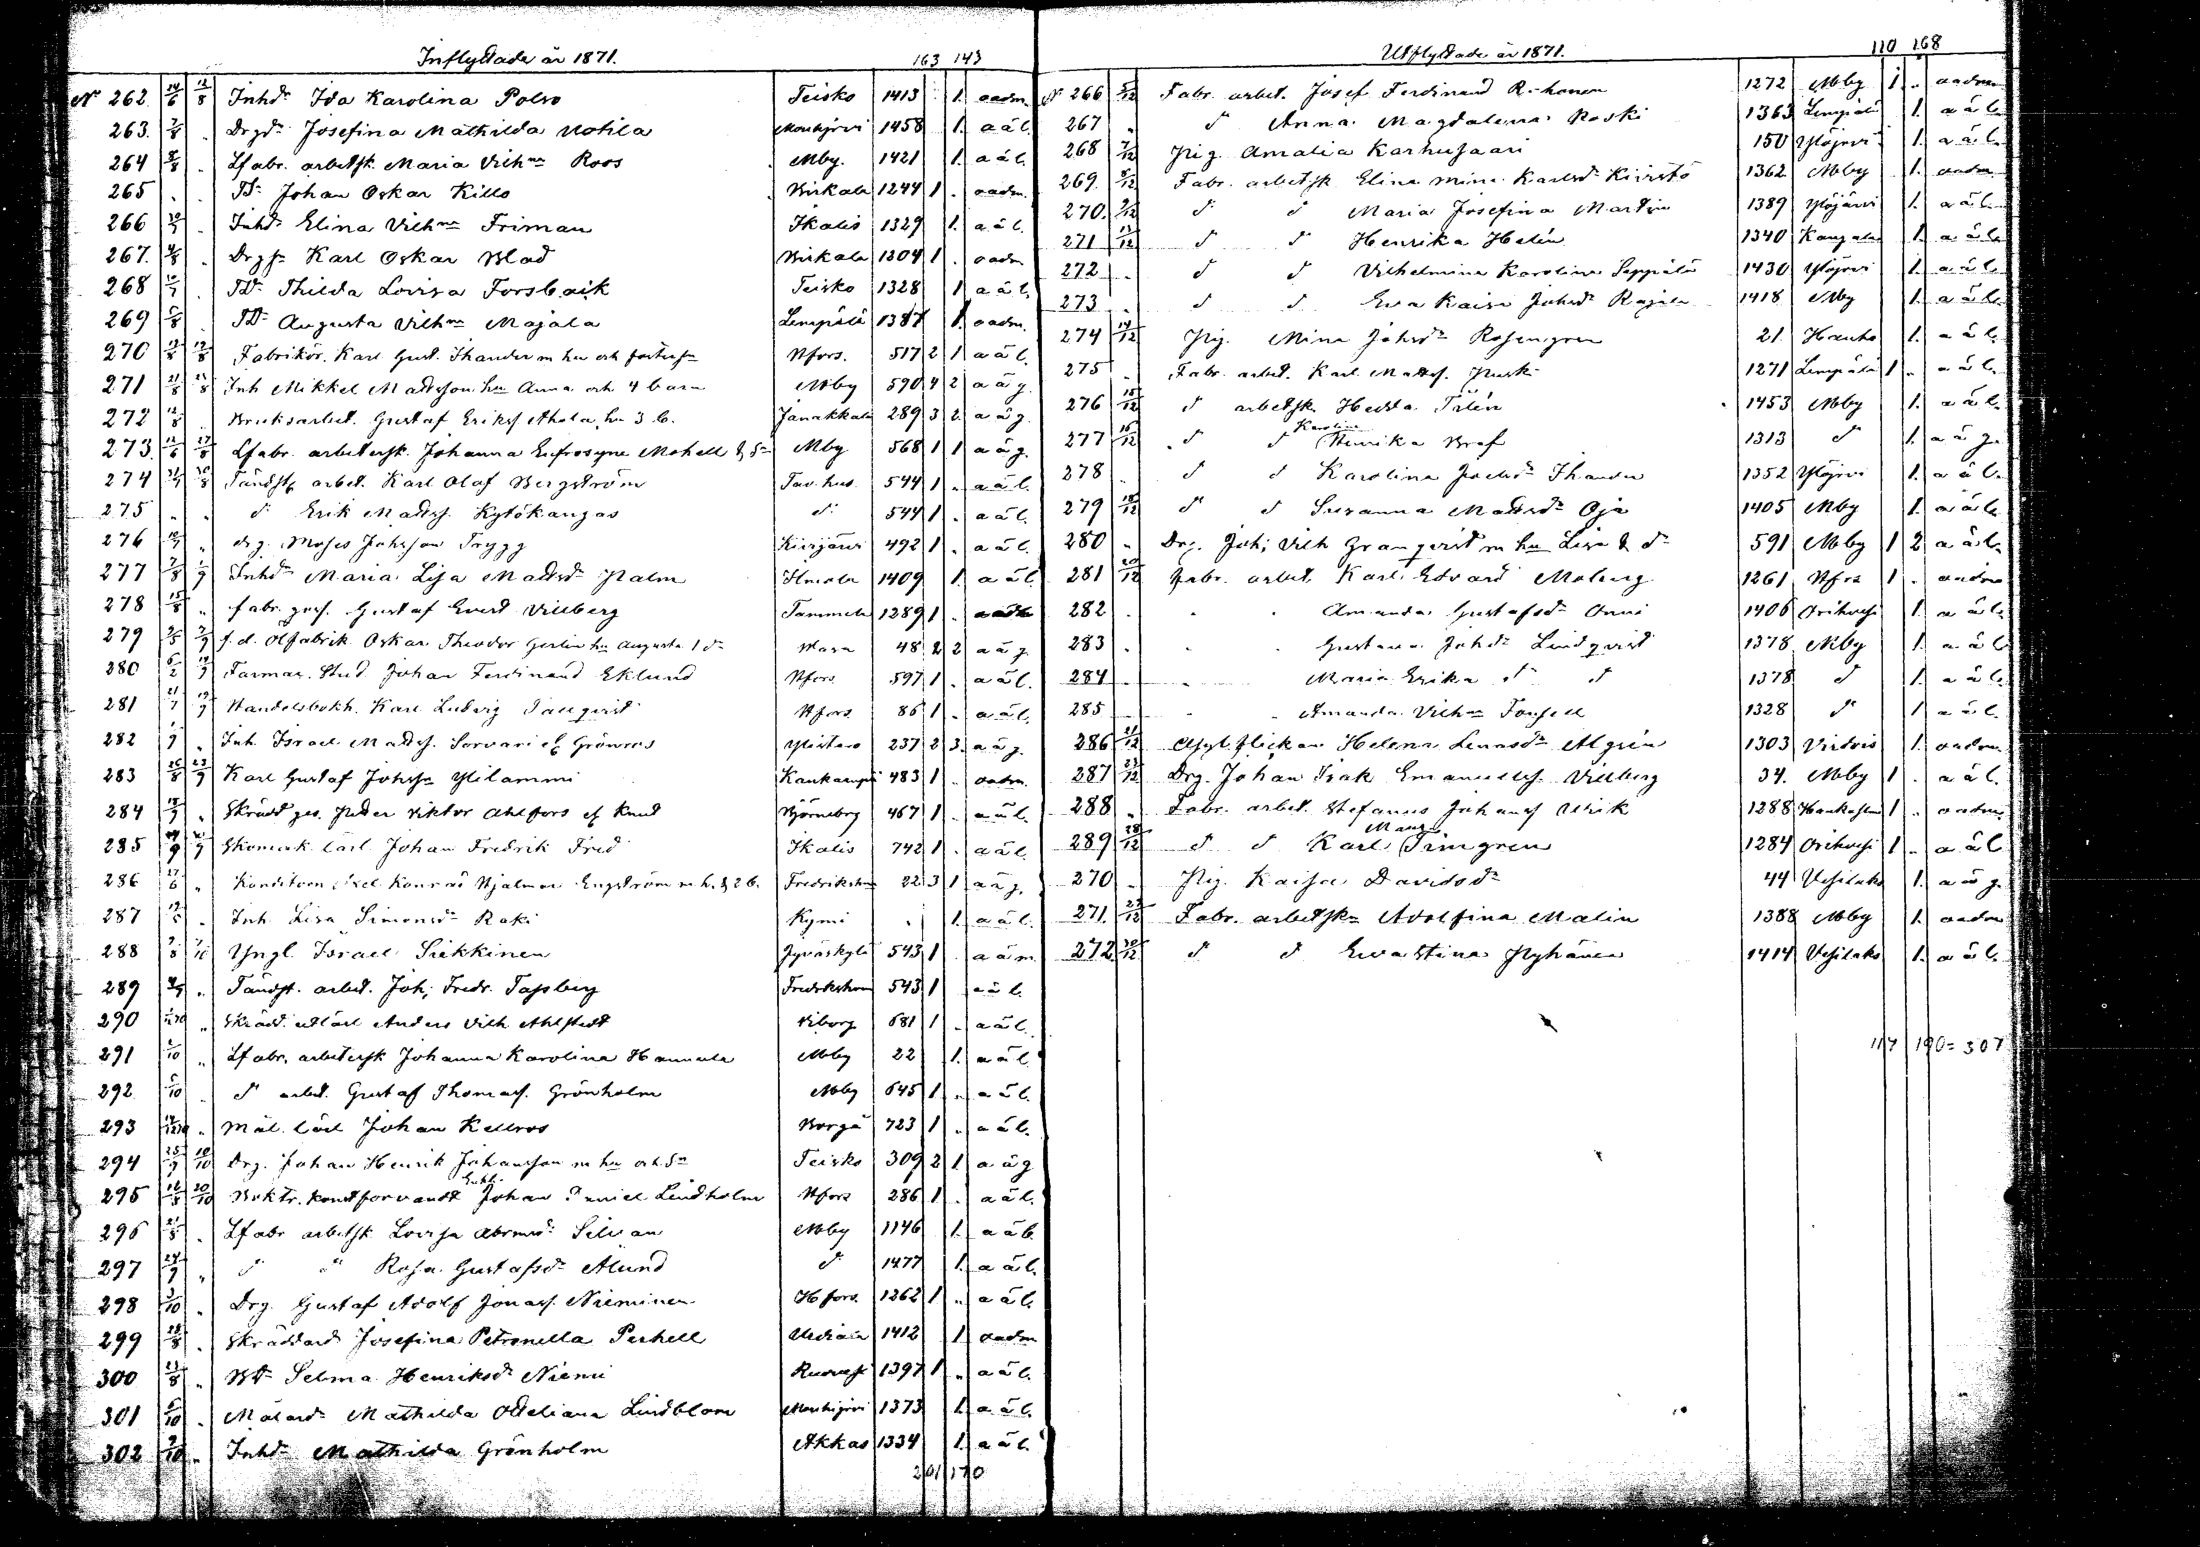 Inflyttade år 1871. 163 143
N 262 14/6 12/8 Inhdr Ida Karolina Polso Teisko 1413 1. oadm.
263. 7/8 . Drgdr Josefina Mathilda Kotila Mouhijrvi 1458 1. a ä l.
264 8/8 . Lfabr. arbetsk Maria Vilhna Roos Mby. 1421 1. a ä l.
265 . . Johan Oskar Killo Birkala 1244 1 . oadm.
266 . Inhdr Elina Vilhna Friman Ikalis 1329 1. a ä l.
267. 4/8 . Karl Oskar Blad Birkala 1204 1 . oadm.
268 . Thilda Lovisa Forsbaik Teisko 1328 1 a ä l.
269 . Augusta Vilhna Majala Lempälä 1387 1. oadm.
270 12/8 Fabrikör. Karl Gust. Thander m hu och Nfors. 517 2 1 a ä l.
271 21/8 Inh Mikkel Mattsson hu Anna och 4 barn Mby 590 4 2 a ä g.
272 12/8 . Bruksarbet. Gustaf Eriksf Ahola, hu 3 b. Janakkala 289 3 2 a ä g.
273. Lfabr. arbetersk. Johanna Eufrosyne Mohell & Mby 568 1 1 a ä g.
274 arbet. Karl Olaf Bergström Tav.hus. 544 1 . a ä l.
275 " " d Erik Mattsf. Kytökangas d 544 1 . a ä l.
276 " drg. Moses Johsson Trygg 492 1 . a ä l.
277 7/8 1/9 Inhdr Maria Lisa Mattsdr Palm Ilmola 1409 1. a ä l.
278 15/8 " fabr. ges. Gustaf Evert Villberg Tammela 1289 1 . oadm
279 f. d. Ölfabrik. Oskar Theodor Gerlin hu Augusta 1 dr Wasa 48 2 2 a ä g.
280 Farmac. Stud. Johan Ferdinand Eklund Nfors. 597 1 . a ä l.
281 Handelsbokh. Karl Ludvig Tallqvist Nfors. 86 1 . a ä l.
282 " Inh. Israel Mattsf. Sorvari el. Grönroos Ylistaro 237 2 3. a ä g.
283 26/8 23/9 Karl Gustaf Johsfn Ylilammi 483 1 . oadm.
284 18/9 " Skrädd ges. Peter Viktor Ahlfors el Knut Björneborg 467 1 . a ä l.
285 Skomak. lärl Johan Fredrik Fred Ikalis 742 1 . a ä l.
286 17/6 " Konditorn Axel Konrad Hjalmar Engström m h. & 2 b. Fredrikshm 22 3 1 a ä g.
287 . Inh. Lisa Simonsdr Raki Kymi . 1. a ä l.
288 Yngl. Israel Siekkinen Jyväskylä 543 1 . a ä m
289 " Tändst. arbet. Joh; Fredr. Tapsberg Fredrikshm 543 1 a ä l.
290 " Skrädd. utlärl Anders Vilh Ahlstedt Viborg 681 1 . a ä l.
291 2/10 " Lfabr. arbetersk Johanna Karolina Hannula Mby 22 1. a ä l.
292 5/10 d arbet. Gustaf Thomasf. Grönholm Mby 645 1 . a ä l.
293 " Mål. lärl Johan Kellros Borgå 723 1 . a ä l.
294 25/9 18/10 Drg. Johan Henrik Johansson m hu och dr Teisko 309 2 1 a ä g
295 20/10 Boktr. konstförvandt Johan Daniel Lindholm Nfors 286 1 . a ä l.
296 21/8 . Lfabr arbetsk Lovisa Abrmsdr Silvan Mby 1146 1. a ä l.
297 24/9 " d d Rosa Gustafsdr Ålund d 1477 1. a ä l.
298 3/10 " Drg. Gustaf Adolf Jonasf. Nieminen Hfors. 1262 1 " a ä l.
299 28/8 . Skräddardr Josefina Petronella Perhell Urdiala 1412 1. oadm
300 23/8 " Selma Henriksdr Niemi Ruovesi 1397 1 " a ä l.
301 6/10 . Målardr Mathilda Odeliana Lindblom Mouhijrvi 1373 1. a ä l.
302 7/10 " Inhdr Mathilda Grönholm Akkas 1334 1. a ä l.
201 170
Utflyttade år 1871. 110 168
N 266 5/12 Fabr. arbet. Josef Ferdinand 1272 Mby 1 . oadm
267 " d Anna Magdalena Koski 1363 Lempälä 1. a ä l.
268 7/12 Pig. Amalia Karhusaari 150 Ylöjrvi 1. a ä l.
269. 8/12 Fabr. arbetsk Elina Mina Karlsdr Kivistö 1362 Mby 1. oadm
270. 9/12 d d Maria Josefina Martin 1389 Ylöjärvi 1. a ä l.
271 13/12 d d Henrika Helén 1340 Kangala 1. a ä l.
272 " d d Vilhelmina Karolina Seppälä 1430 Ylöjrvi 1. a ä l.
273 . d d Eva Kaisa Johsdr Rajala 1418 Mby 1. a ä l.
274 14/12 Pig. Mina Johsdr Rosengren 21 Hauho 1. a ä l.
275 . Fabr. arbet. Karl Mattsf. Puski 1271 Lempälä 1 . a ä l.
276 15/12 d arbetsk. Hedda Tilén 1453 Mby 1. a ä l.
277 16/12 d d Karolina Henrika Bref 1313 d 1. a ä g.
278 d d Karolina Joelsdr Thander 1352 Ylöjrvi 1. a ä l.
279 18/12 d d Susanna Mattsdr Oja 1405 Mby 1. a ä l.
280 " Drg. Joh; Vilh Granqvist m hu Lisa & dr 591 Mby 1 2 a ä l.
281 20/12 Fabr. arbet. Karl Edvard Moberg 1261 Nfrs 1 . oadm
282 . " . Amanda Gustafsdr Onni 1406 Orihvesi 1. a ä l.
283 . " . Gustava Johdr Lindqvist 1378 Mby 1. a ä l.
284 . " Maria Erika d d 1378 d 1. a ä l.
285 " . Amanda Vilhna Forsell 1328 d 1 a ä l.
286 21/12 Asyl. flickan Helena Lennsdr Algrén 1303 Virdois 1. oadm.
287 23/12 Drg. Johan Isak Emanuelsf. Villberg 34. Mby 1 . a ä l.
288 " Fabr. arbet. Stefanus Johansf Ulrik 1288 1 . oadm
289 28/12 d d Karl Magn. Timgren 1284 Orihvesi 1 . a ä l
270 " Pig. Kaisa Davidsdr 44 Vesilaks 1. a ä g.
271. 29/12 Fabr. arbetsk Adolfina Malin 1388 Mby 1. oadm
272 30/12 d d Eva Stina Nyhänen 1414 Vesilaks 1. a ä l.
117 190 = 307